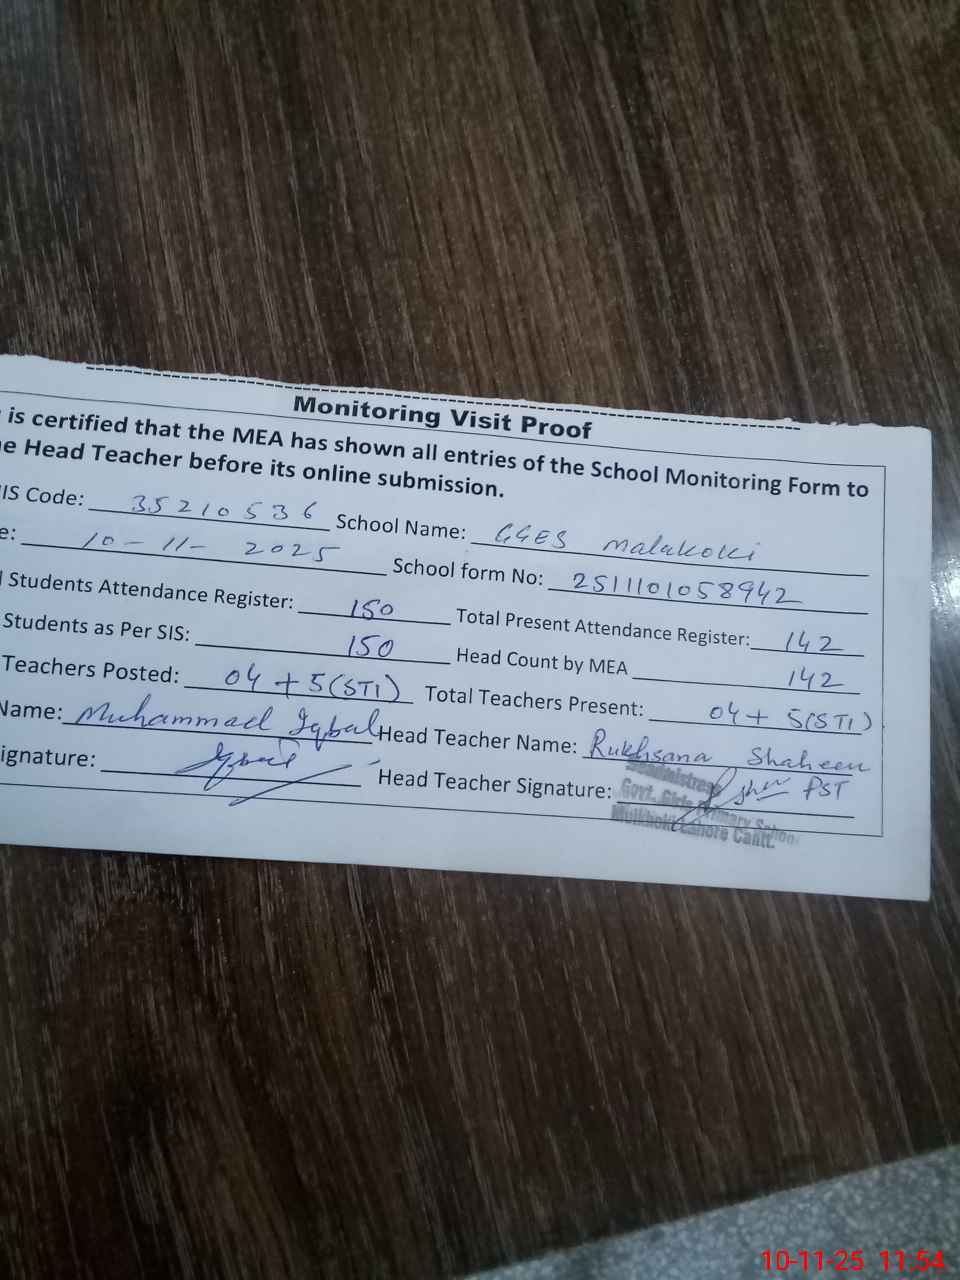 Monitoring Visit Proof
is certified that the MEA has shown all entries of the School Monitoring Form to
e Head Teacher before its online submission.
IS Code: 35210536 School Name: GGES Malakoki
e: 10-11-2025 School form No: 2511101058942
l Students Attendance Register: 150 Total Present Attendance Register: 142
Students as Per SIS: 150 Head Count by MEA 142
Teachers Posted: 04+5(STI) Total Teachers Present: 04+ 5(STI)
Name: Muhammad Iqbal Head Teacher Name: Rukhsana Shaheen
ignature: Iqbal Head Teacher Signature: PST
Headmistress
Govt. Girls Primary School
Lahore Cantt.
10-11-25 11:54